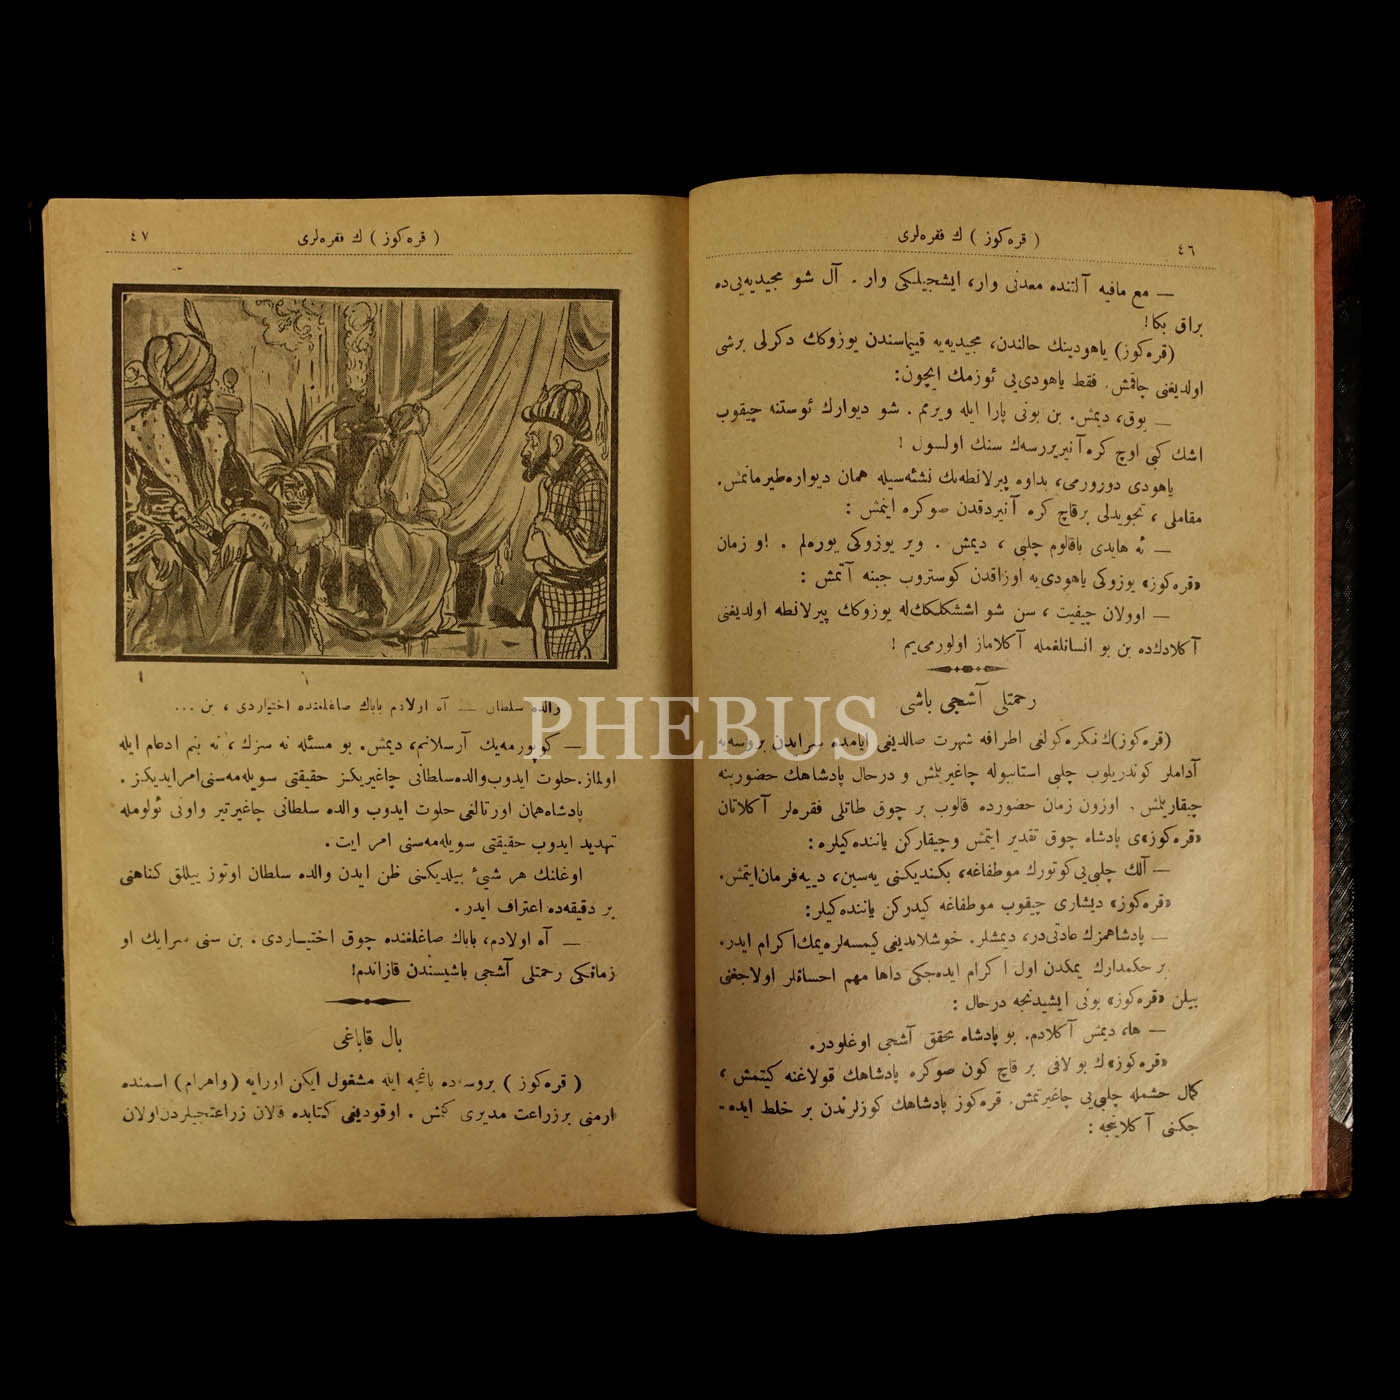 ٤٦
( قره‌كوز ) ك فقره‌لرى
— مع مافيه آلتنده معدنى وار، ايشجيلكى وار . آل شو مجيديه‌يى ده
براق بكا!
(قره‌كوز) ياهودينك حالندن، مجيديه‌يه قييماسندن يوزوكك دكرلى برشى
اولديغنى چاقمش. فقط ياهودى‌يى ئوزمك ايچون:
— يوق، ديمش. بن بونى پارا ايله ويرمم . شو ديوارك ئوستنه چيقوب
اشك كبى اوچ كره آنيريرسه‌ك سنك اولسول !
ياهودى دورورمى، بداوه پيرلانطه‌نك نشئه‌سيله همان ديواره طيرماتمش.
مقاملى ، تجويدلى برقاچ كره آنيردقدن صوكره اينمش :
— ئه هايدى باقالوم چلبى ، ديمش . وير يوزوكى يوره‌لم . او زمان
«قره‌كوز» يوزوكى ياهودى‌يه اوزاقدن كوستروب جبنه آتمش :
— اوولان چيفيت ، سن شو اششكلكك‌له يوزوكك پيرلانطه اولديغنى
آكلادك‌ده بن بو انسانلغمله آكلاماز اولورمى‌يم !
رحمتلى آشجى باشى
(قره‌كوز)ك نكره‌كولغى اطرافه شهرت صالديغى ايامده سرايدن بروسه‌يه
آداملر كوندريلوب چلبى استانبوله چاغيريلمش و درحال پادشاهك حضورينه
چيقاريلمش . اوزون زمان حضورده قالوب بر چوق طاتلى فقره‌لر آكلاتان
«قره‌كوز»ى پادشاه چوق تقدير ايتمش وچيقاركن ياننده‌كيلره :
— آلك چلبى‌يى كوتورك موطفاغه، بكنديكنى يه‌سين، دييه فرمان ايتمش.
«قره‌كوز» ديشارى چيقوب موطفاغه كيدركن ياننده‌كيلر:
— پادشاهمزك عادتى‌در، ديمشلر. خوشلانديغى كيمسه‌لره يمك اكرام ايدر.
بر حكمدارك يمكدن اول اكرام ايده‌جكى داها مهم احسانلر اولاجغنى
بيلن «قره‌كوز» بونى ايشيدنجه درحال :
— ها، ديمش آكلادم. بو پادشاه محقق آشجى اوغلودر.
«قره‌كوز»ك بو لافى بر قاچ كون صوكره پادشاهك قولاغنه كيتمش ،
كمال حشمله چلبى‌يى چاغيرتمش. قره‌كوز پادشاهك كوزلرندن بر خلط ايده-
جكنى آكلاينجه :
٤٧
( قره‌كوز ) ك فقره‌لرى
والده سلطان — آه اولادم باباك صاغلغنده اختياردى ، بن ...
— كوپورمه‌يك آرسلانم، ديمش. بو مسئله نه سزك ، نه بنم ادعام ايله
اولماز. خلوت ايدوب والده سلطانى چاغيريكز حقيقتى سويله‌مه‌سنى امر ايديكز .
پادشاه همان اورتالغى خلوت ايدوب والده سلطانى چاغيرتير واونى ئولومله
تهديد ايدوب حقيقتى سويله‌مه‌سنى امر ايت .
اوغلنك هر شيئ بيلديكنى ظن ايدن والده سلطان اوتوز ييللق كناهنى
بر دقيقه‌ده اعتراف ايدر .
— آه اولادم، باباك صاغلغنده چوق اختياردى. بن سنى سرايك او
زمانكى رحمتلى آشجى باشيسندن قازاندم!
بال قاباغى
( قره‌كوز ) بروسه‌ده باغچه ايله مشغول ايكن اورايه (واهرام) اسمنده
ارمنى برزراعت مديرى كلمش . اوقوديغى كتابده قالان زراعتجيلردن اولان
PHEBUS